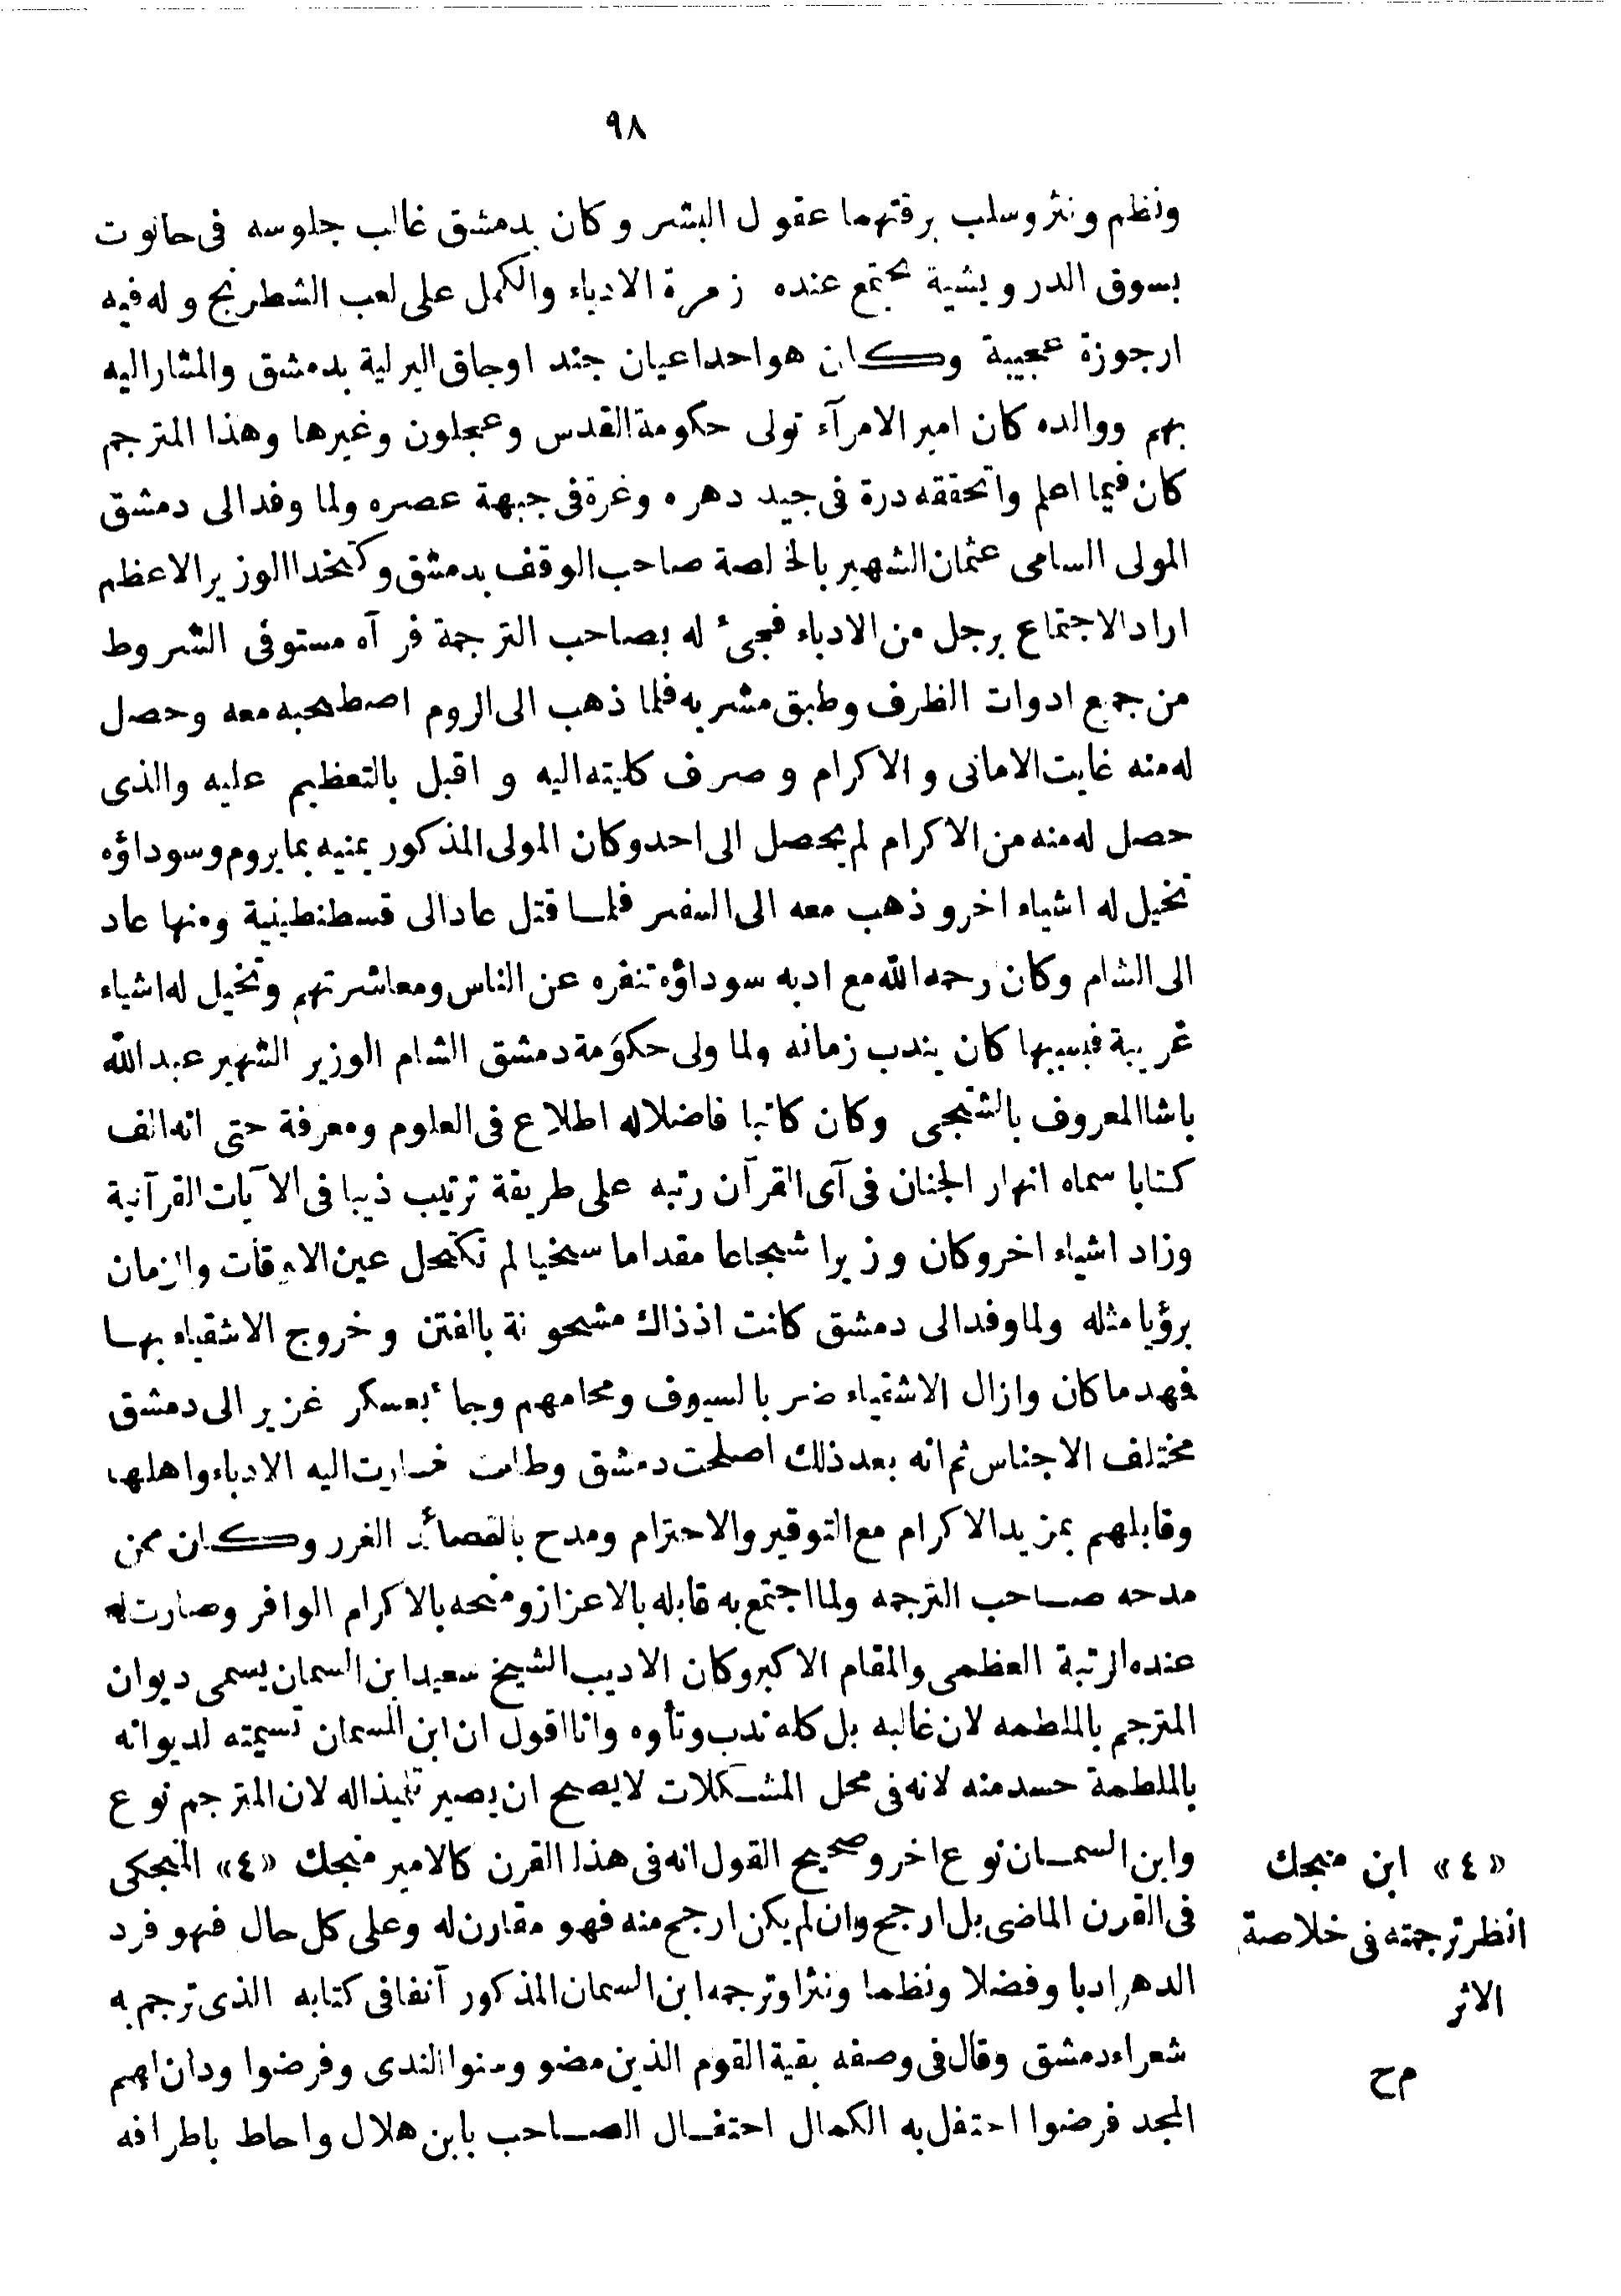 ٩٨
ونظم ونثر وسلب برقتهما عقول البشر وكان بدمشق غالب جلوسه فى حانوت
بسوق الدرويشية يجتمع عنده زمرة الادباء والكمل على لعب الشطرنج وله فيه
ارجوزة عجيبة وكان هو احد اعيان جند اوجاق اليرلية بدمشق والمشار اليه
بهم ووالده كان امير الامرآء تولى حكومة القدس وعجلون وغيرها وهذا المترجم
كان فيما اعلم واتحققه درة فى جيد دهره وغرة فى جبهة عصره ولما وفد الى دمشق
المولى السامى عثمان الشهير بالخلصة صاحب الوقف بدمشق وكتخدا الوزير الاعظم
اراد الاجتماع برجل من الادباء فجىء له بصاحب الترجمة فرآه مستوفى الشروط
من جمع ادوات الظرف وطبق مشربه فلما ذهب الى الروم اصطحبه معه وحصل
له منه غايت الامانى والاكرام وصرف كليته اليه واقبل بالتعظيم عليه والذى
حصل له منه من الاكرام لم يحصل الى احد وكان المولى المذكور يمنيه بما يروم وسوداؤه
تخيل له اشياء اخر وذهب معه الى السفر فلما قتل عاد الى قسطنطينية ومنها عاد
الى الشام وكان رحمه الله مع ادبه سوداؤه تنفره عن الناس ومعاشرتهم وتخيل له اشياء
غريبة فبسببها كان يندب زمانه ولما ولى حكومة دمشق الشام الوزير الشهير عبد الله
باشا المعروف بالشتجى وكان كاتبا فاضلا له اطلاع فى العلوم ومعرفة حتى انه الف
كتابا سماه انهار الجنان فى آى القرآن رتبه على طريقة ترتيب ذيبا فى الآيات القرآنية
وزاد اشياء اخر وكان وزيرا شجاعا مقداما سخيا لم تكتحل عين الاوقات والزمان
برؤيا مثله ولما وفد الى دمشق كانت اذ ذاك مشحونة بالفتن وخروج الاشقياء بها
فمهد ما كان وازال الاشقياء ضربا لسيوف ومحامهم وجاء بعسكر غزير الى دمشق
مختلف الاجناس ثم انه بعد ذلك اصلحت دمشق وطابت فسارت اليه الادباء واهلها
وقابلهم بمزيد الاكرام مع التوقير والاحترام ومدح بالقصائد الغرر وكان ممن
مدحه صاحب الترجمه ولما اجتمع به قابله بالاعزاز ومنحه بالاكرام الوافر وصارت له
عنده الرتبة العظمى والمقام الاكبر وكان الاديب الشيخ سعيد ابن السمان يسمى ديوان
المترجم بالملطمه لان غالبه بل كله ندب وتأوه وانا اقول ان ابن السمان تسميته لديوانه
بالملطمة حسد منه لانه فى محل المشكلات لا يصح ان يصير تلميذا له لان المترجم نوع
وابن السمان نوع اخر وصحيح القول انه فى هذا القرن كالامير منجك «٤» المنجكى
فى القرن الماضى بل ارجح وان لم يكن ارجح منه فهو مقارن له وعلى كل حال فهو فرد
الدهر ادبا وفضلا ونظما ونثرا وترجمه ابن السمان المذكور آنفا فى كتابه الذى ترجم به
شعراء دمشق وقال فى وصفه بقية القوم الذين مضوا وسنوا الندى وفرضوا ودان لهم
المجد فرضوا احتفل به الكمال احتفال الصاحب بابن هلال واحاط باطرافه
«٤» ابن منجك
انظر ترجمته فى خلاصة
الاثر
م ح